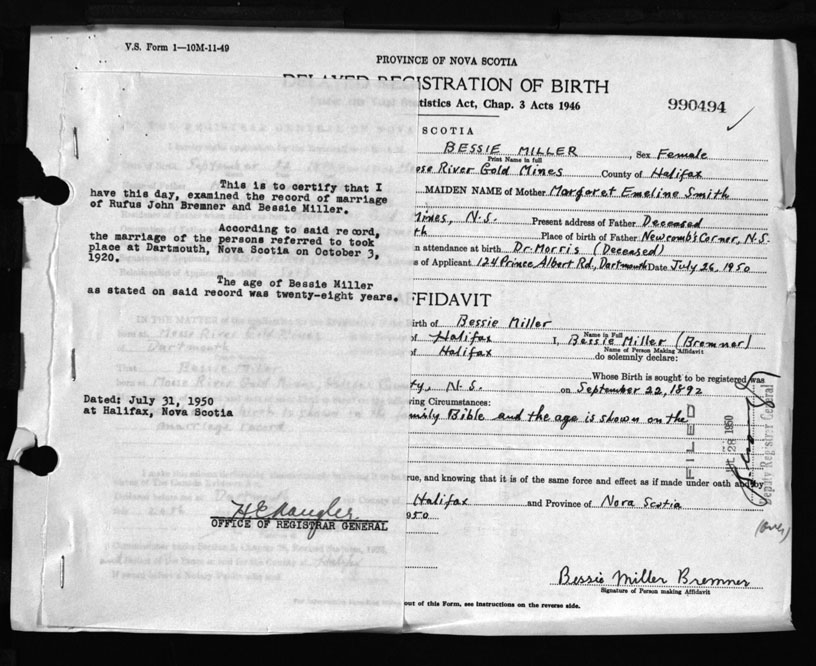 V.S. Form 1—10M-11-49
PROVINCE OF NOVA SCOTIA
DELAYED REGISTRATION OF BIRTH
tistics Act, Chap. 3 Acts 1946
990494
SCOTIA
BESSIE MILLER, Sex Female
Print Name in full
ose River Gold Mines County of Halifax
MAIDEN NAME of Mother Margaret Emeline Smith
Mines, N.S. Present address of Father Deceased
th Place of birth of Father Newcomb's Corner, N.S.
n attendance at birth Dr. Morris (Deceased)
s of Applicant 124 Prince Albert Rd., Dartmouth Date July 26, 1950
This is to certify that I
have this day, examined the record of marriage
of Rufus John Bremner and Bessie Miller.
According to said record,
the marriage of the persons referred to took
place at Dartmouth, Nova Scotia on October 3,
1920.
The age of Bessie Miller
as stated on said record was twenty-eight years.
Dated: July 31, 1950
at Halifax, Nova Scotia
OFFICE OF REGISTRAR GENERAL
FFIDAVIT
irth of Bessie Miller
Name in Full
of Halifax I, Bessie Miller (Bremner)
Name of Person Making Affidavit
of Halifax do solemnly declare:
Whose Birth is sought to be registered was
ty, N.S. on September 22, 1892
ring Circumstances:
mily Bible and the age is shown on the
FILED
28 1950
Deputy Registrar General
rue, and knowing that it is of the same force and effect as if made under oath and by
Halifax and Province of Nova Scotia
950
(over)
Bessie Miller Bremner
Signature of Person making Affidavit
out of this Form, see instructions on the reverse side.